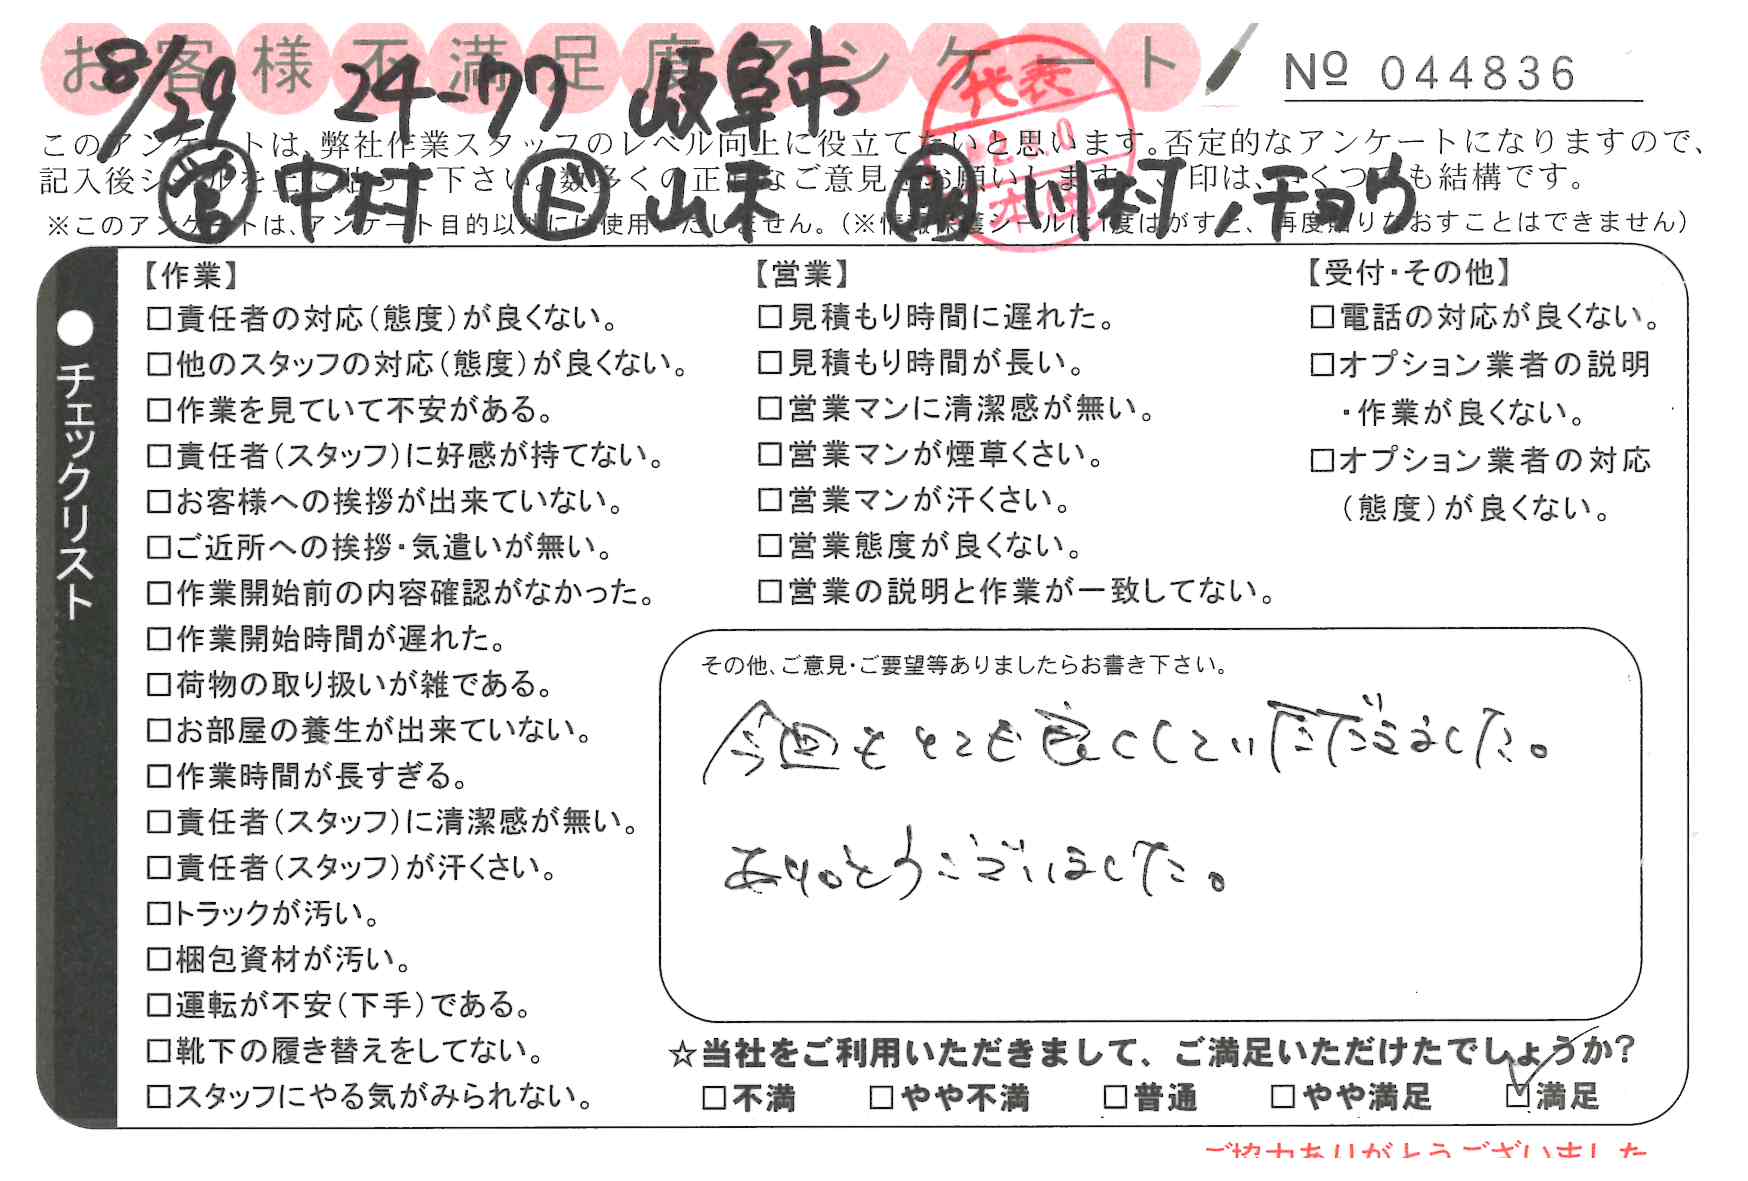 お客様不満足度アンケート
№ 044836
8/29 24-77 岐阜市
このアンケートは、弊社作業スタッフのレベル向上に役立てたいと思います。否定的なアンケートになりますので、
記入後シールを上に貼って下さい。数多くの正直なご意見をお願いします。
営 中村 ド 山末 川村、チョウ
代表
本田
【作業】
□責任者の対応(態度)が良くない。
□他のスタッフの対応(態度)が良くない。
□作業を見ていて不安がある。
□責任者(スタッフ)に好感が持てない。
□お客様への挨拶が出来ていない。
□ご近所への挨拶・気遣いが無い。
□作業開始前の内容確認がなかった。
□作業開始時間が遅れた。
□荷物の取り扱いが雑である。
□お部屋の養生が出来ていない。
□作業時間が長すぎる。
□責任者(スタッフ)に清潔感が無い。
□責任者(スタッフ)が汗くさい。
□トラックが汚い。
□梱包資材が汚い。
□運転が不安(下手)である。
□靴下の履き替えをしてない。
□スタッフにやる気がみられない。
【営業】
□見積もり時間に遅れた。
□見積もり時間が長い。
□営業マンに清潔感が無い。
□営業マンが煙草くさい。
□営業マンが汗くさい。
□営業態度が良くない。
□営業の説明と作業が一致してない。
【受付・その他】
□電話の対応が良くない。
□オプション業者の説明
・作業が良くない。
□オプション業者の対応
(態度)が良くない。
●チェックリスト
その他、ご意見・ご要望等ありましたらお書き下さい。
今回もとても良くしていただきました。
ありがとうございました。
☆当社をご利用いただきまして、ご満足いただけたでしょうか?
□不満 □やや不満 □普通 □やや満足 ☑満足
ご協力ありがとうございました